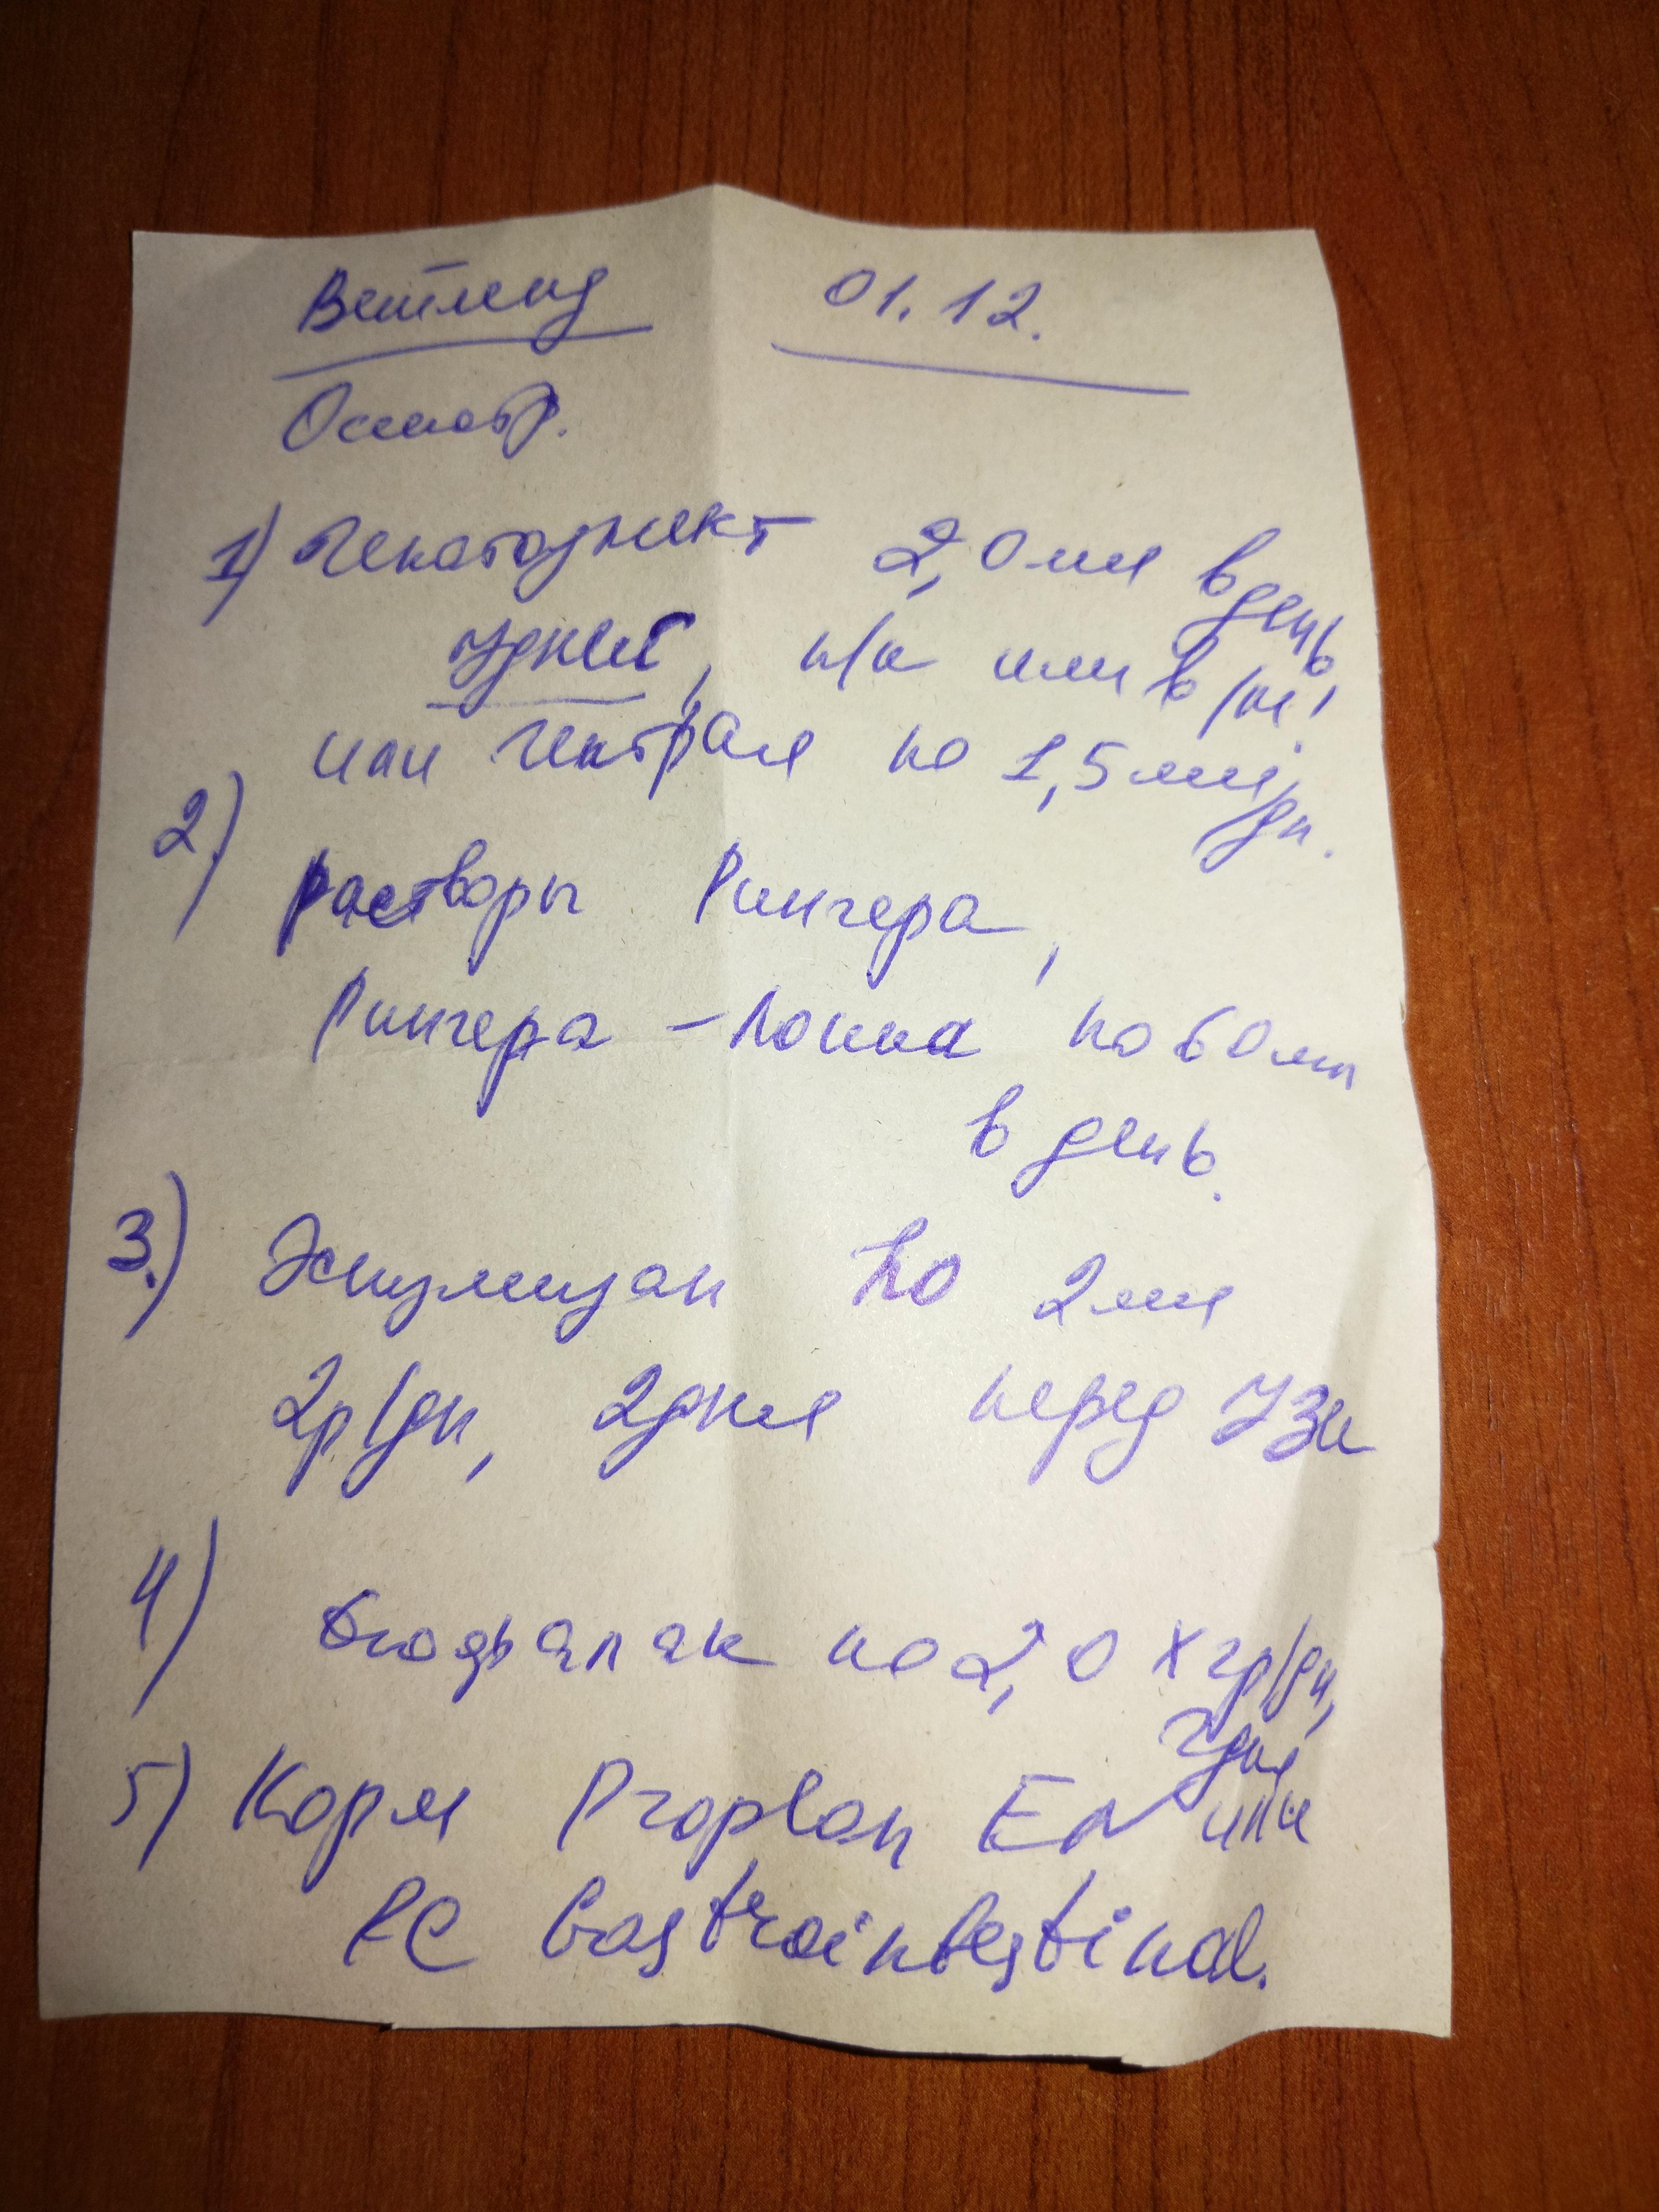 Ветленд 01.12.
Осмотр.
1) Гепатоджект 2,0 мл в день
7 дней, п/к или в/м!
или Гептрал по 1,5 мл/дн.
2)
растворы Рингера,
Рингера - Локка по 60 мл
в день.
3.) Эспумизан по 2 мл
2р/дн, 2 дня перед УЗИ
4)
Дюфалак по 2,0 х 2р/дн,
2 дня
5) Корм Proplan EN или
RC Gastrointestinal.